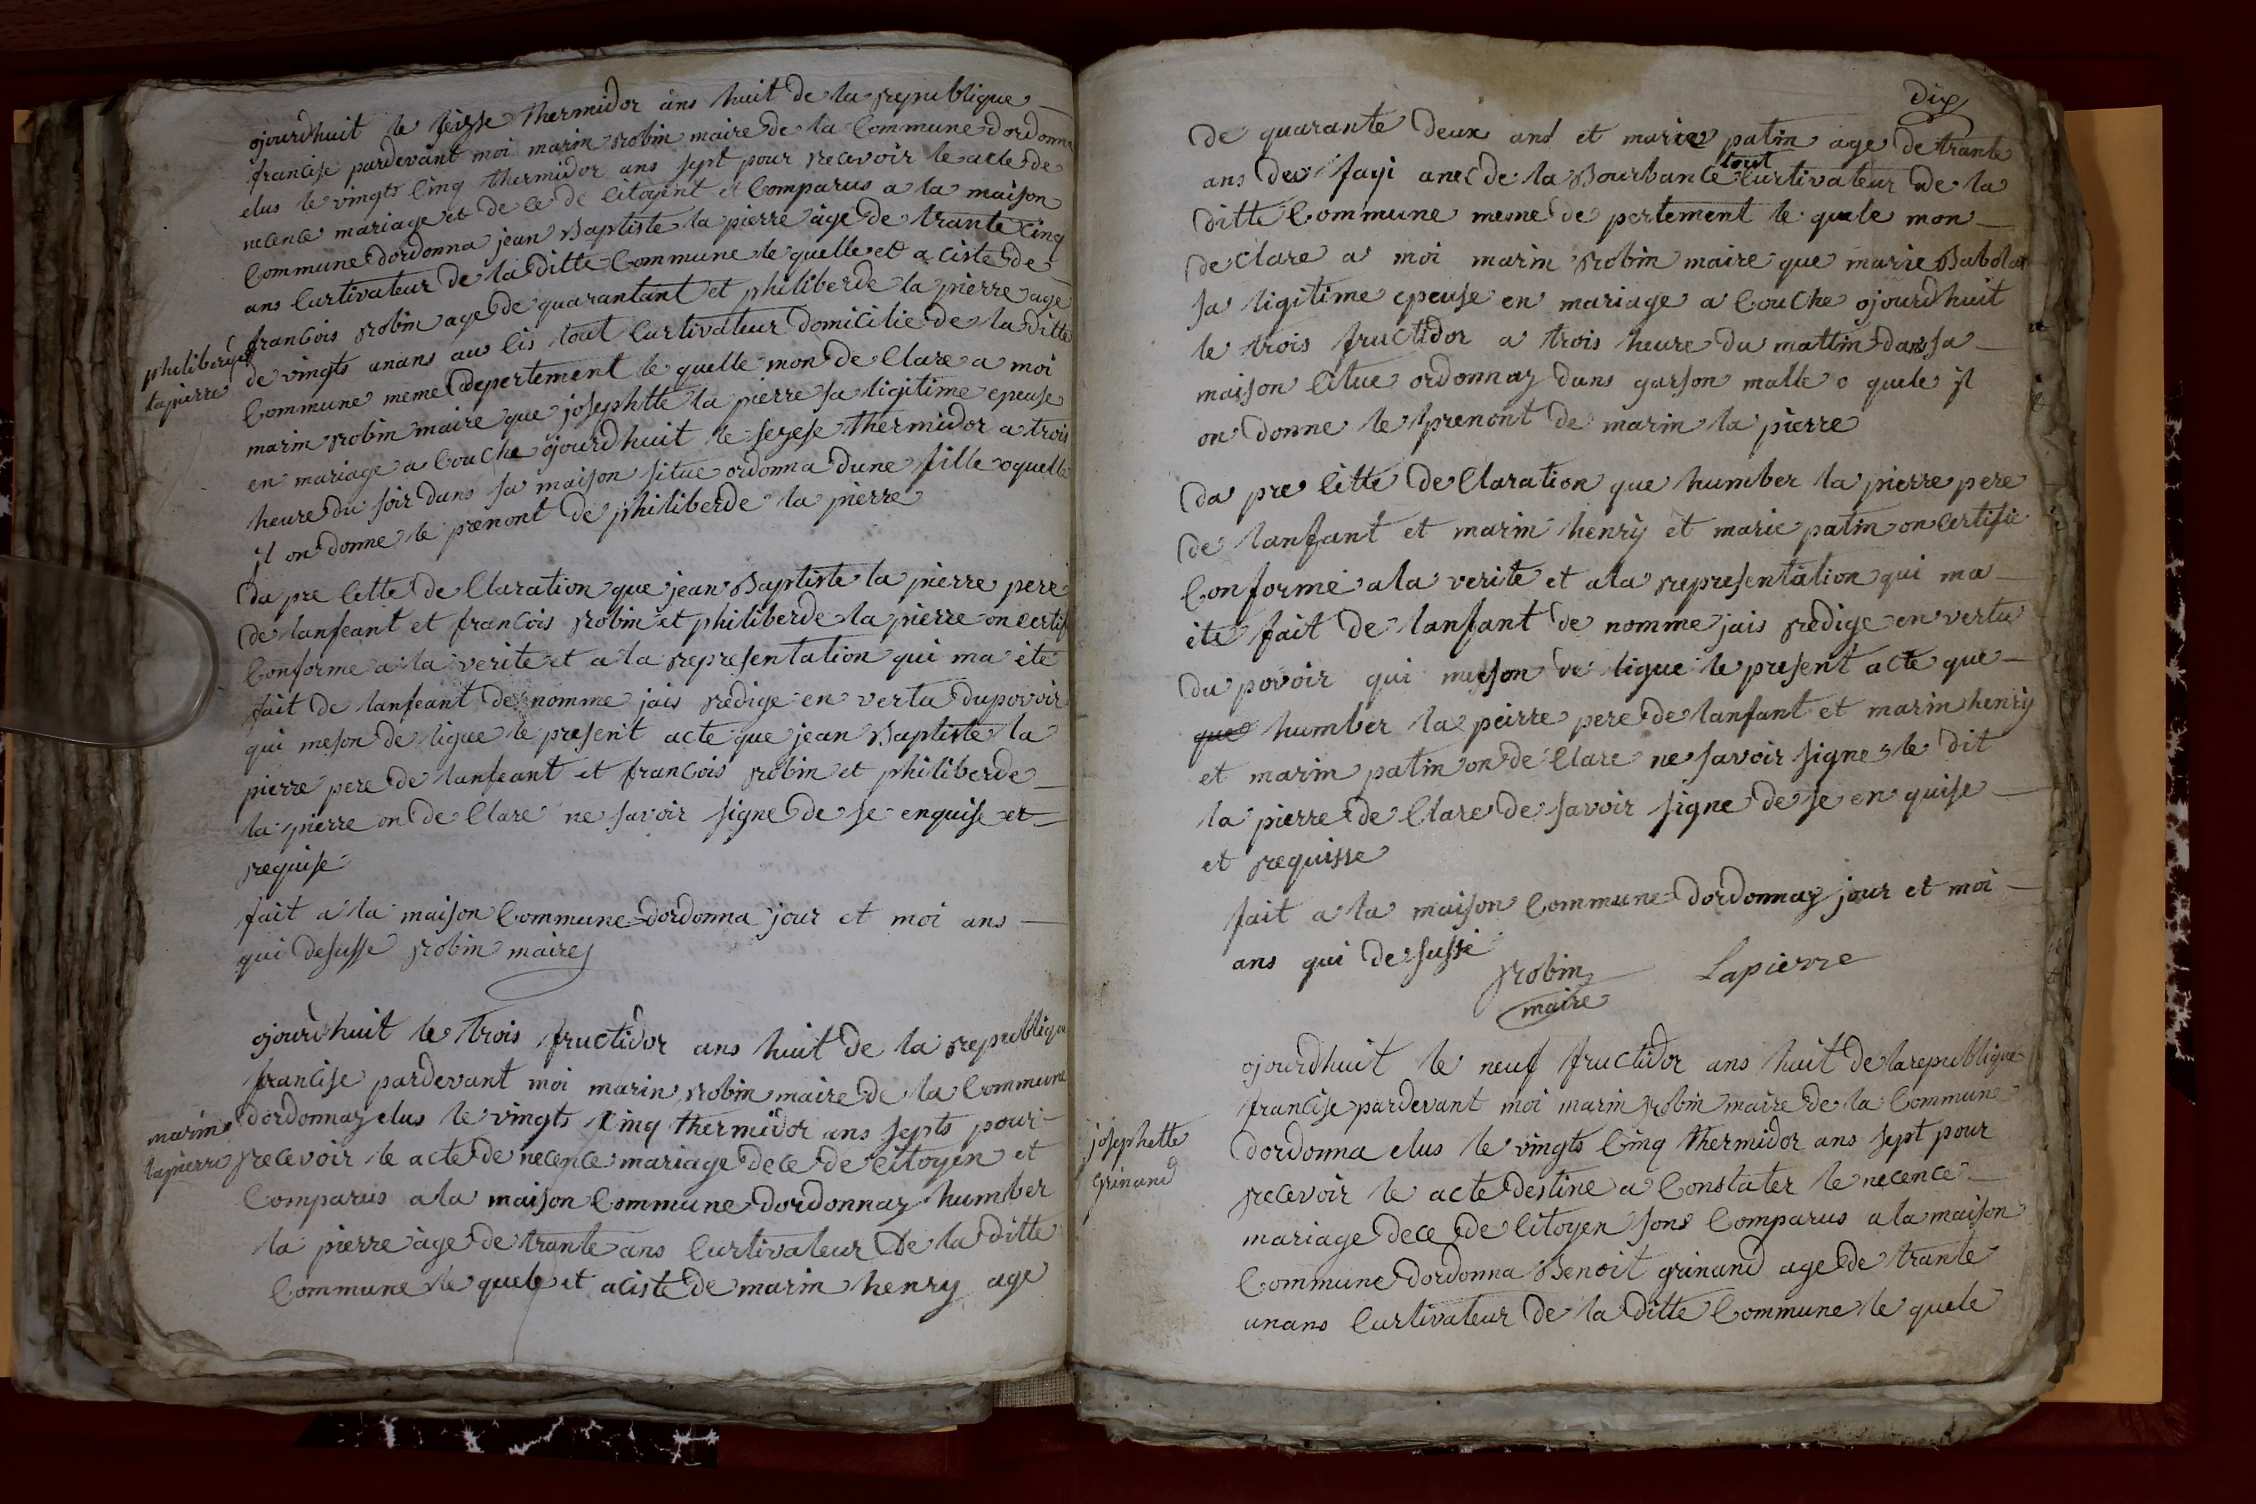 ojourdhuit le seizse thermidor ans huit de la republique
francise pardevant moi marin robin maire de la Commune dordonna
elus le vingts Cinq thermidor ans sept pour recevoir le acte de
necence mariage et de ce de Citoyent et Comparus a la maison
Commune dordonna jean Baptiste la pierre age de trante Cinq
ans Curtivateur de la ditte Commune le quelle et a ciste de
francois robin age de quarantant et philiberde la pierre age
de vingts anans au lis tout Curtivateur domicilie de la ditte
philiberde
lapierre
Commune meme depertement le quelle mon de Clare a moi
marin robin maire que josephtte la pierre sa ligitime epeuse
en mariage a Couche ojourdhuit le sezese thermidor a trois
heure du soir dans sa maison situe ordonna dune fille oquelle
il on donne le prenont de philiberde la pierre
da pre Cette de Claration que jean Baptiste la pierre pere
de lanfeant et francois robin et philiberde la pierre on certif
Conforme a la verite et a la representation qui ma ete
fait de lanfeant de nomme jais redige en vertu dupovoir
qui meson de ligue le present acte que jean Baptiste la
pierre pere de lanfeant et francois robin et philiberde
la pierre on de Clare ne savoir signe de se enquise et
requise
fait a la maison Commune dordonna jour et moi ans
qui desusse robin maire
ojourdhuit le trois fructidor ans huit de la republique
francise pardevant moi marin robin maire de la Commune
dordonnaz elus le vingts Cinq thermidor ans septs pour
marin
lapierre
recevoir le acte de necence mariage de ce de Citoyen et
Comparus a la maison Commune dordonnaz humber
la pierre age de trante ans Curtivateur de la ditte
Commune le quele et aciste de marin henry age
dix
de quarante deux ans et marie patin age de trante
ans de fayi anec de la Bourbance tout Curtivateur de la
ditte Commune mesne de pertement le quele mon
de Clare a moi marin robin maire que marie Babolat
sa ligitime epeuse en mariage a Couche ojourdhuit
le trois fructidor a trois heure du mattin dans sa
maison Citue ordonnaz duns garson malle o quele il
on donne le prenont de marin la pierre
da pre Cette de Claration que humber la pierre pere
de lanfant et marin henry et marie patin on Certifie
Conforme a la verite et ala representation qui ma
ete fait de lanfant de nomme jais redige en vertu
du povoir qui meson de ligue le present acte que
que humber la peirre pere de lanfant et marin henry
et marin patin on de Clare ne savoir signe le dit
la pierre de Clare de savoir signe de se en quise
et requisse
fait a la maison Commune dordonnaz jour et moi
ans qui desusse
robin
maire
Lapierre
ojourdhuit le neuf fructidor ans huit de la republique
francise pardevant moi marin robin maire de la Commune
josephette
grinand
dordonna elus le vingts Cinq thermidor ans sept pour
recevoir le acte destine a Constater le necence
mariage dece de Citoyen sons Comparus a la maison
Commune dordonna Benoit grinand age de trante
unans Curtivateur de la ditte Commune le quele